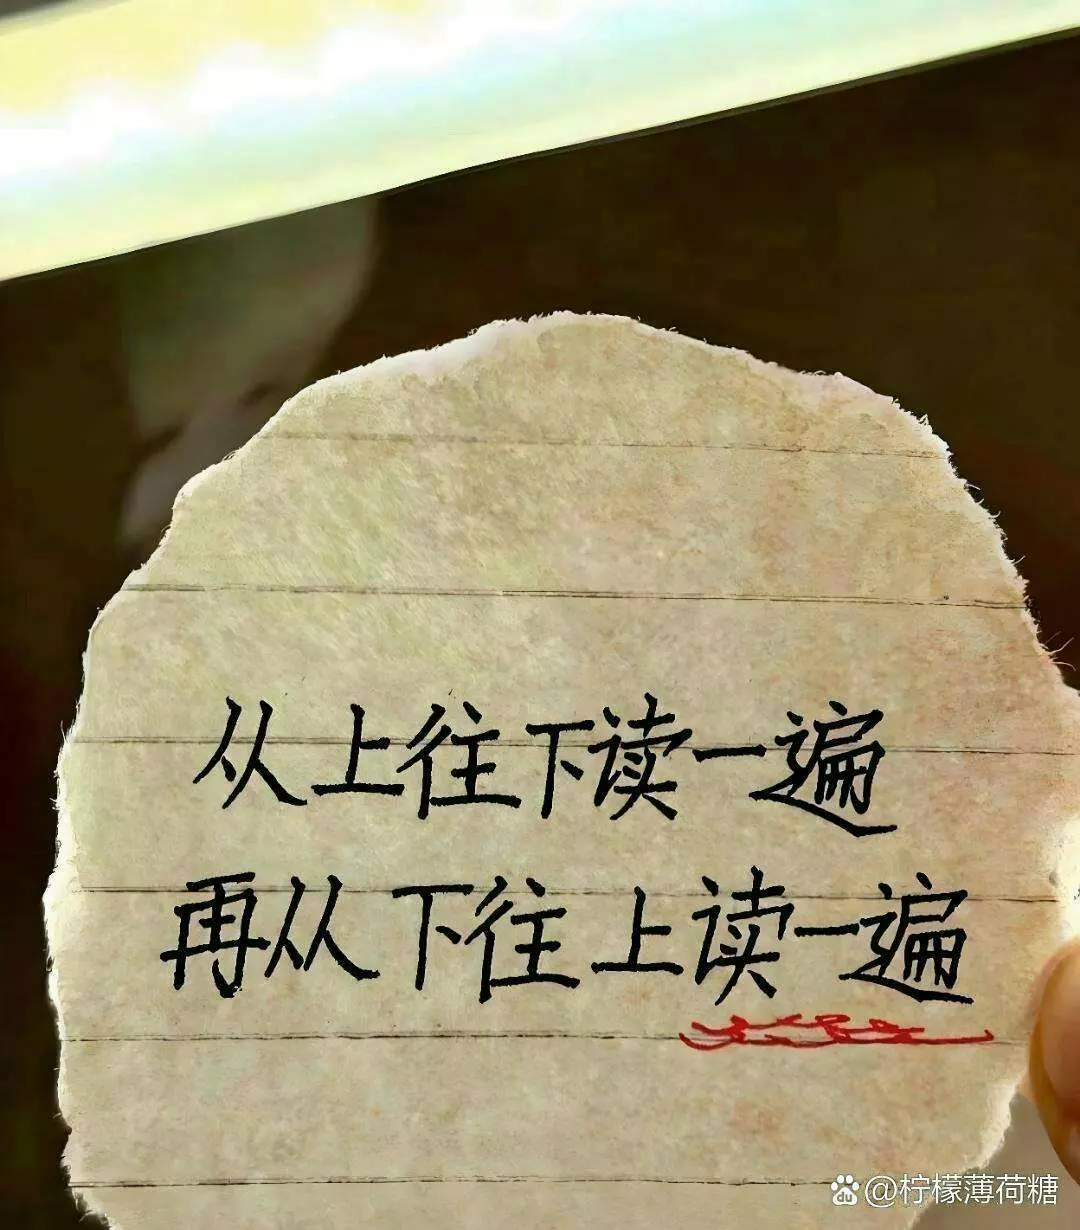 从上往下读一遍
再从下往上读一遍
du @柠檬薄荷糖